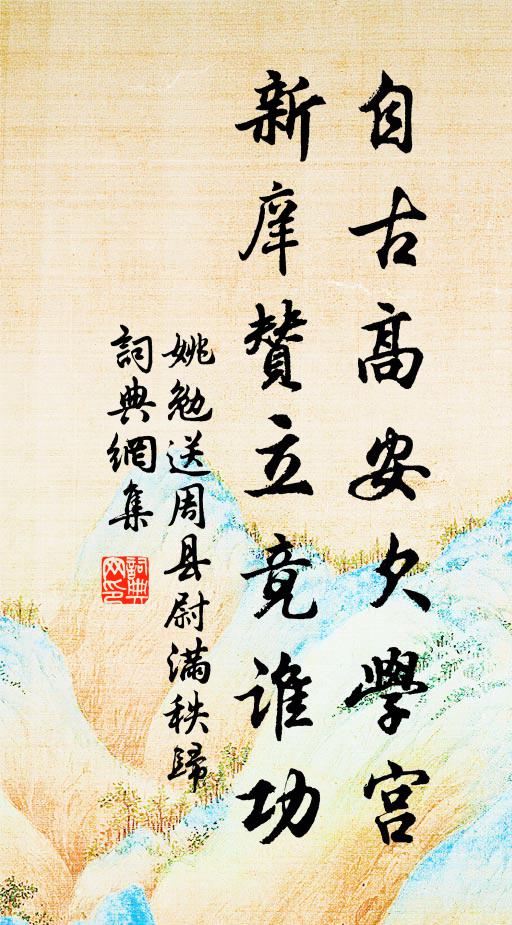 自古高安欠學宮
新庠贊立竟誰功
姚勉送周县尉滿秩歸
詞典網集
詞典網印